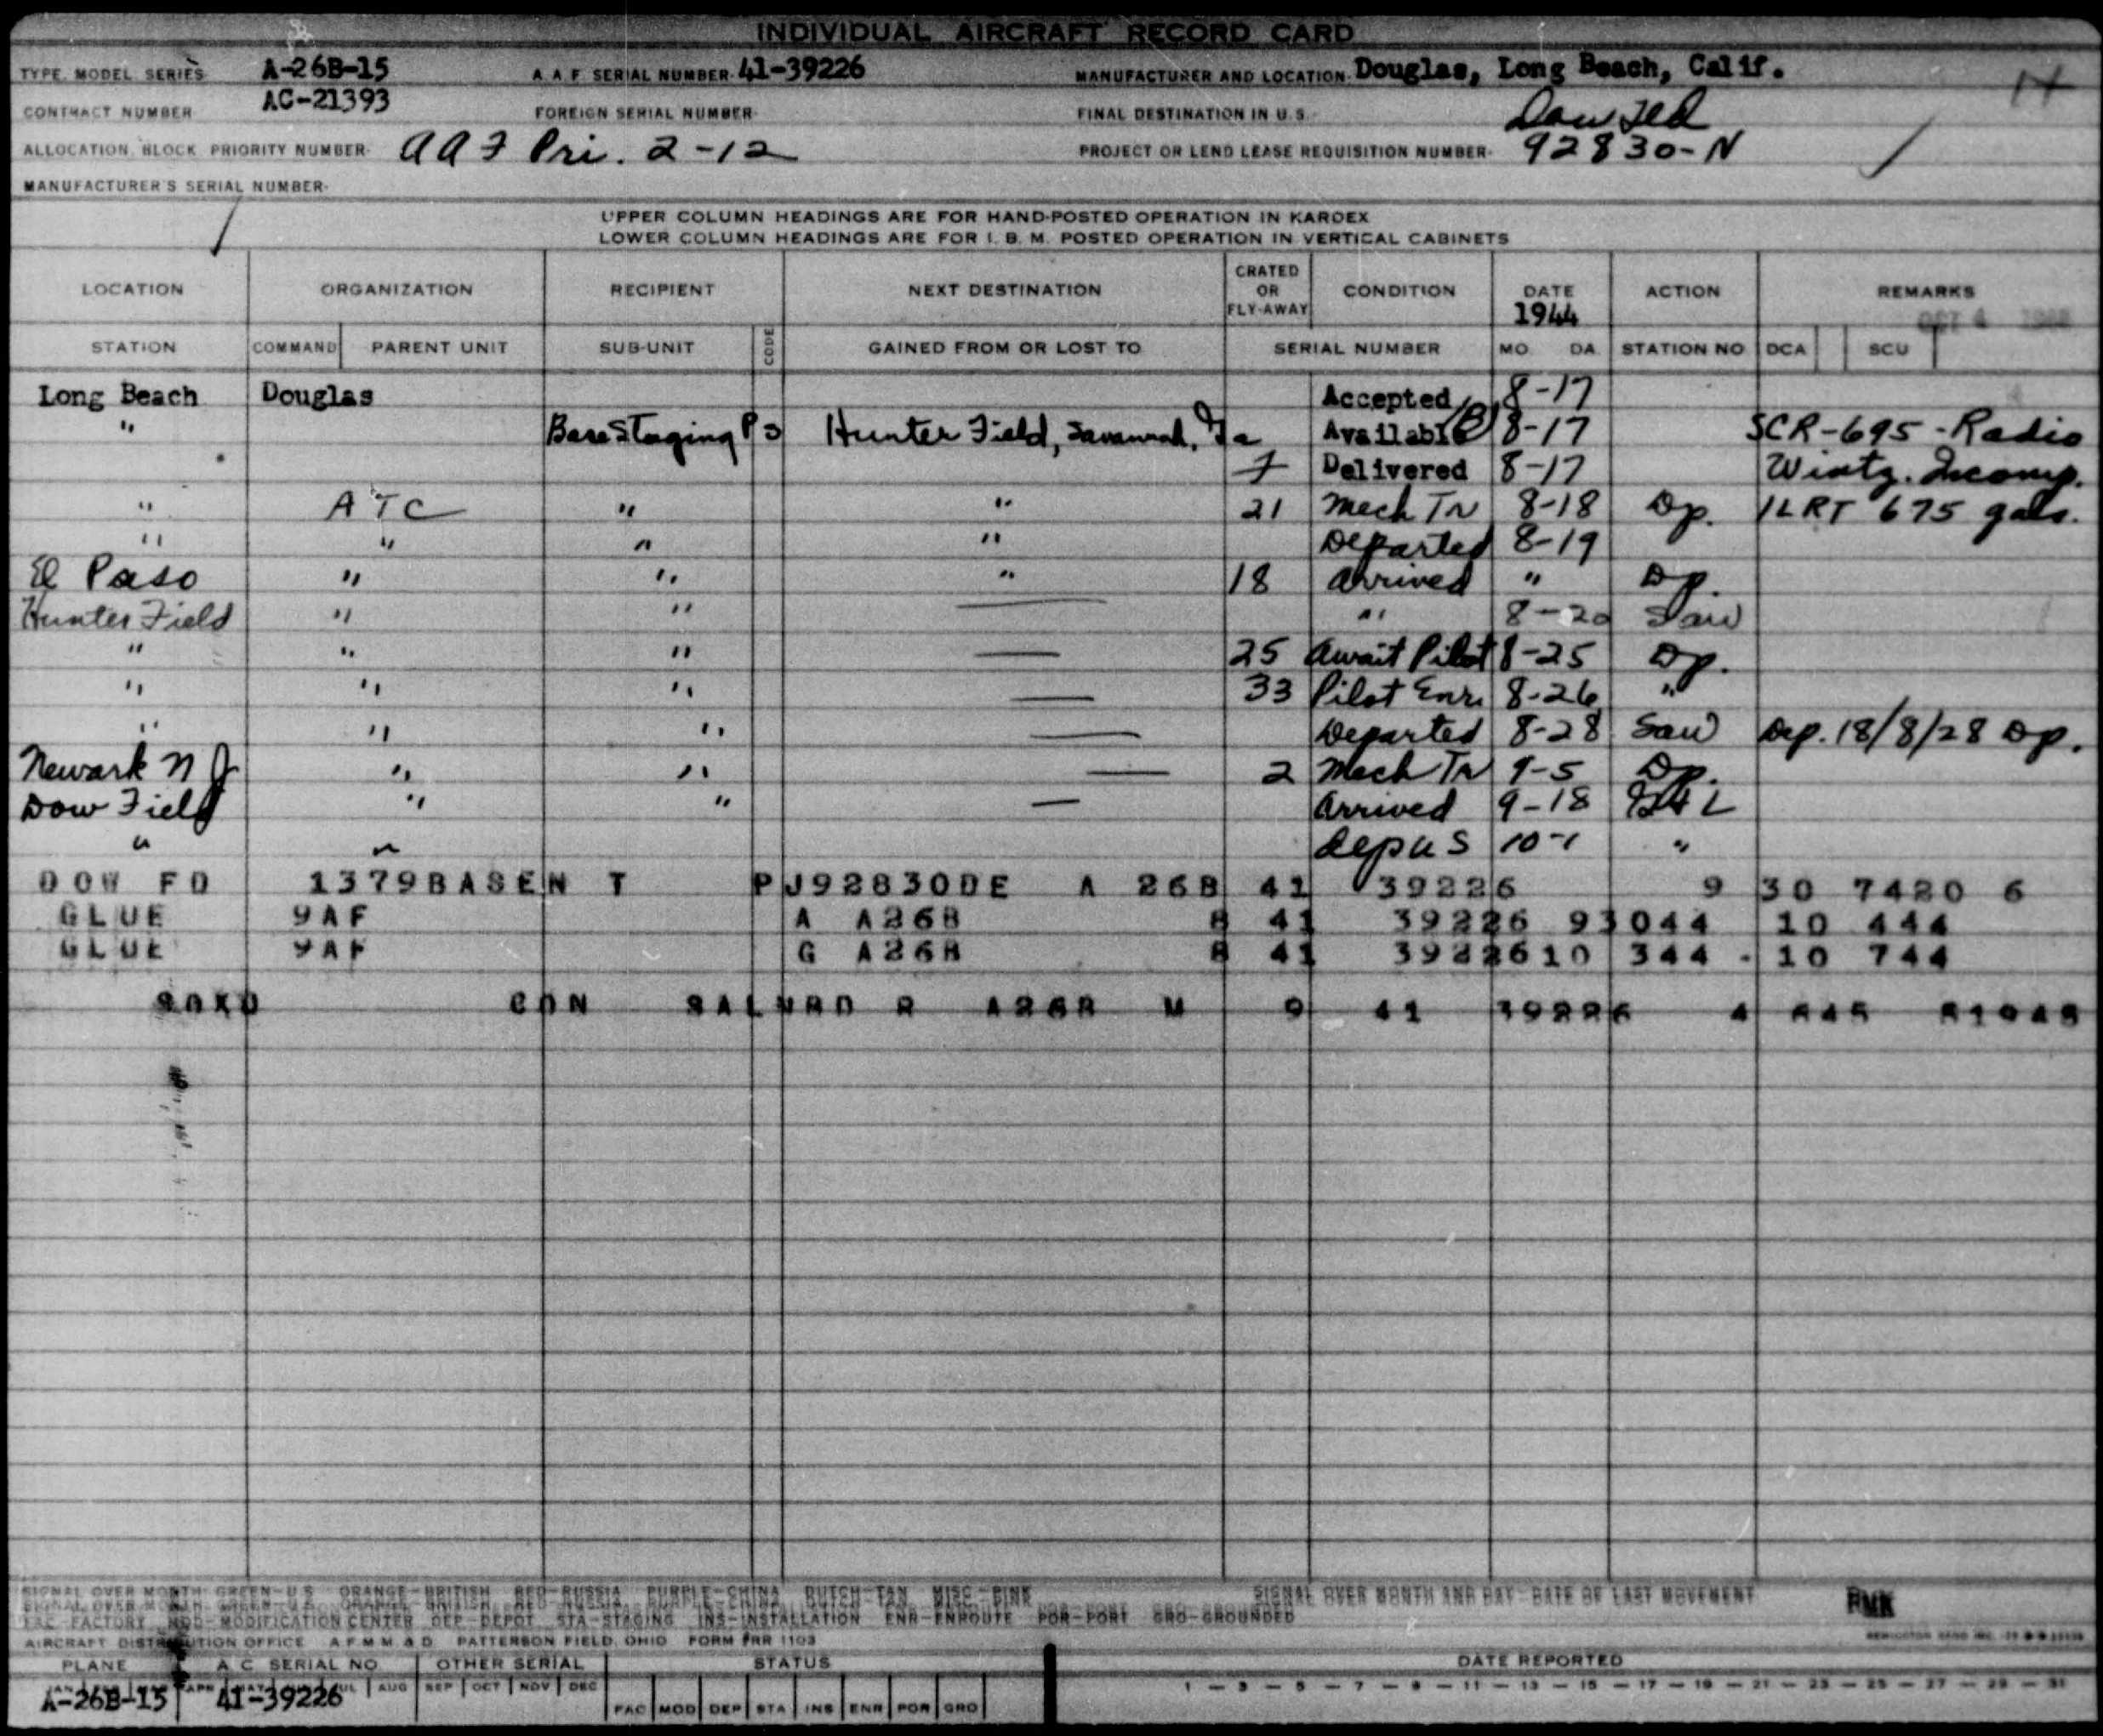 INDIVIDUAL AIRCRAFT RECORD CARD
TYPE. MODEL SERIES A-26B-15 A. A. F. SERIAL NUMBER 41-39226 MANUFACTURER AND LOCATION Douglas, Long Beach, Calif.
CONTRACT NUMBER AC-21393 FOREIGN SERIAL NUMBER FINAL DESTINATION IN U. S. Dow
ALLOCATION, BLOCK PRIORITY NUMBER AAF Pri. 2-12 PROJECT OR LEND LEASE REQUISITION NUMBER 92830-N
MANUFACTURER'S SERIAL NUMBER
UPPER COLUMN HEADINGS ARE FOR HAND-POSTED OPERATION IN KARDEX
LOWER COLUMN HEADINGS ARE FOR I. B. M. POSTED OPERATION IN VERTICAL CABINETS
LOCATION ORGANIZATION RECIPIENT NEXT DESTINATION CRATED OR FLY-AWAY CONDITION DATE 1944 ACTION REMARKS
STATION COMMAND PARENT UNIT SUB-UNIT CODE GAINED FROM OR LOST TO SERIAL NUMBER MO. DA. STATION NO DCA SCU
Long Beach Douglas Accepted 8-17
" Base Staging Hunter Field, Savannah, Ga Available 8-17 SCR-695-Radio
F Delivered 8-17 Wintz. Incomp.
" ATC " " 21 Mech Tr 8-18 Dp. 1LRT 675 gals.
" " " " Departed 8-19
El Paso " " " 18 Arrived " Dp.
Hunter Field " " — " 8-20 Saw
" " " — 25 Await Pilot 8-25 Dp.
" " " — 33 Pilot Enr. 8-26 "
" " " — Departed 8-28 Saw Dep. 18/8/28 Dp.
Newark N J " " — 2 Mech Tr 9-5 Dp.
Dow Field " " — Arrived 9-18
" " depus 10-1 "
DOW FD 1379BASEN T PJ92830DE A 26B 41 39226 9 30 7420 6
GLUE 9AF A A26B B 41 39226 93044 10 444
GLUE 9AF G A26B B 41 3922610 344 10 744
CON SAL A26B M 9 41 39226 4 645
SIGNAL OVER MONTH GREEN-U.S. ORANGE-BRITISH RED-RUSSIA PURPLE-CHINA DUTCH-TAN MISC.-PINK SIGNAL OVER MONTH AND DAY-DATE OF LAST MOVEMENT RMK
FAC-FACTORY MOD-MODIFICATION CENTER DEP-DEPOT STA-STAGING INS-INSTALLATION ENR-ENROUTE POR-PORT GRO-GROUNDED
AIRCRAFT DISTRIBUTION OFFICE A.F.M.M.&D. PATTERSON FIELD, OHIO FORM PRR 1103
PLANE A C SERIAL NO. OTHER SERIAL STATUS DATE REPORTED
A-26B-15 APR 41-39226 AUG SEP OCT NOV DEC 1 - 3 - 5 - 7 - 9 - 11 - 13 - 15 - 17 - 19 - 21 - 23 - 25 - 27 - 29 - 31
FAC MOD DEP STA INS ENR POR GRO